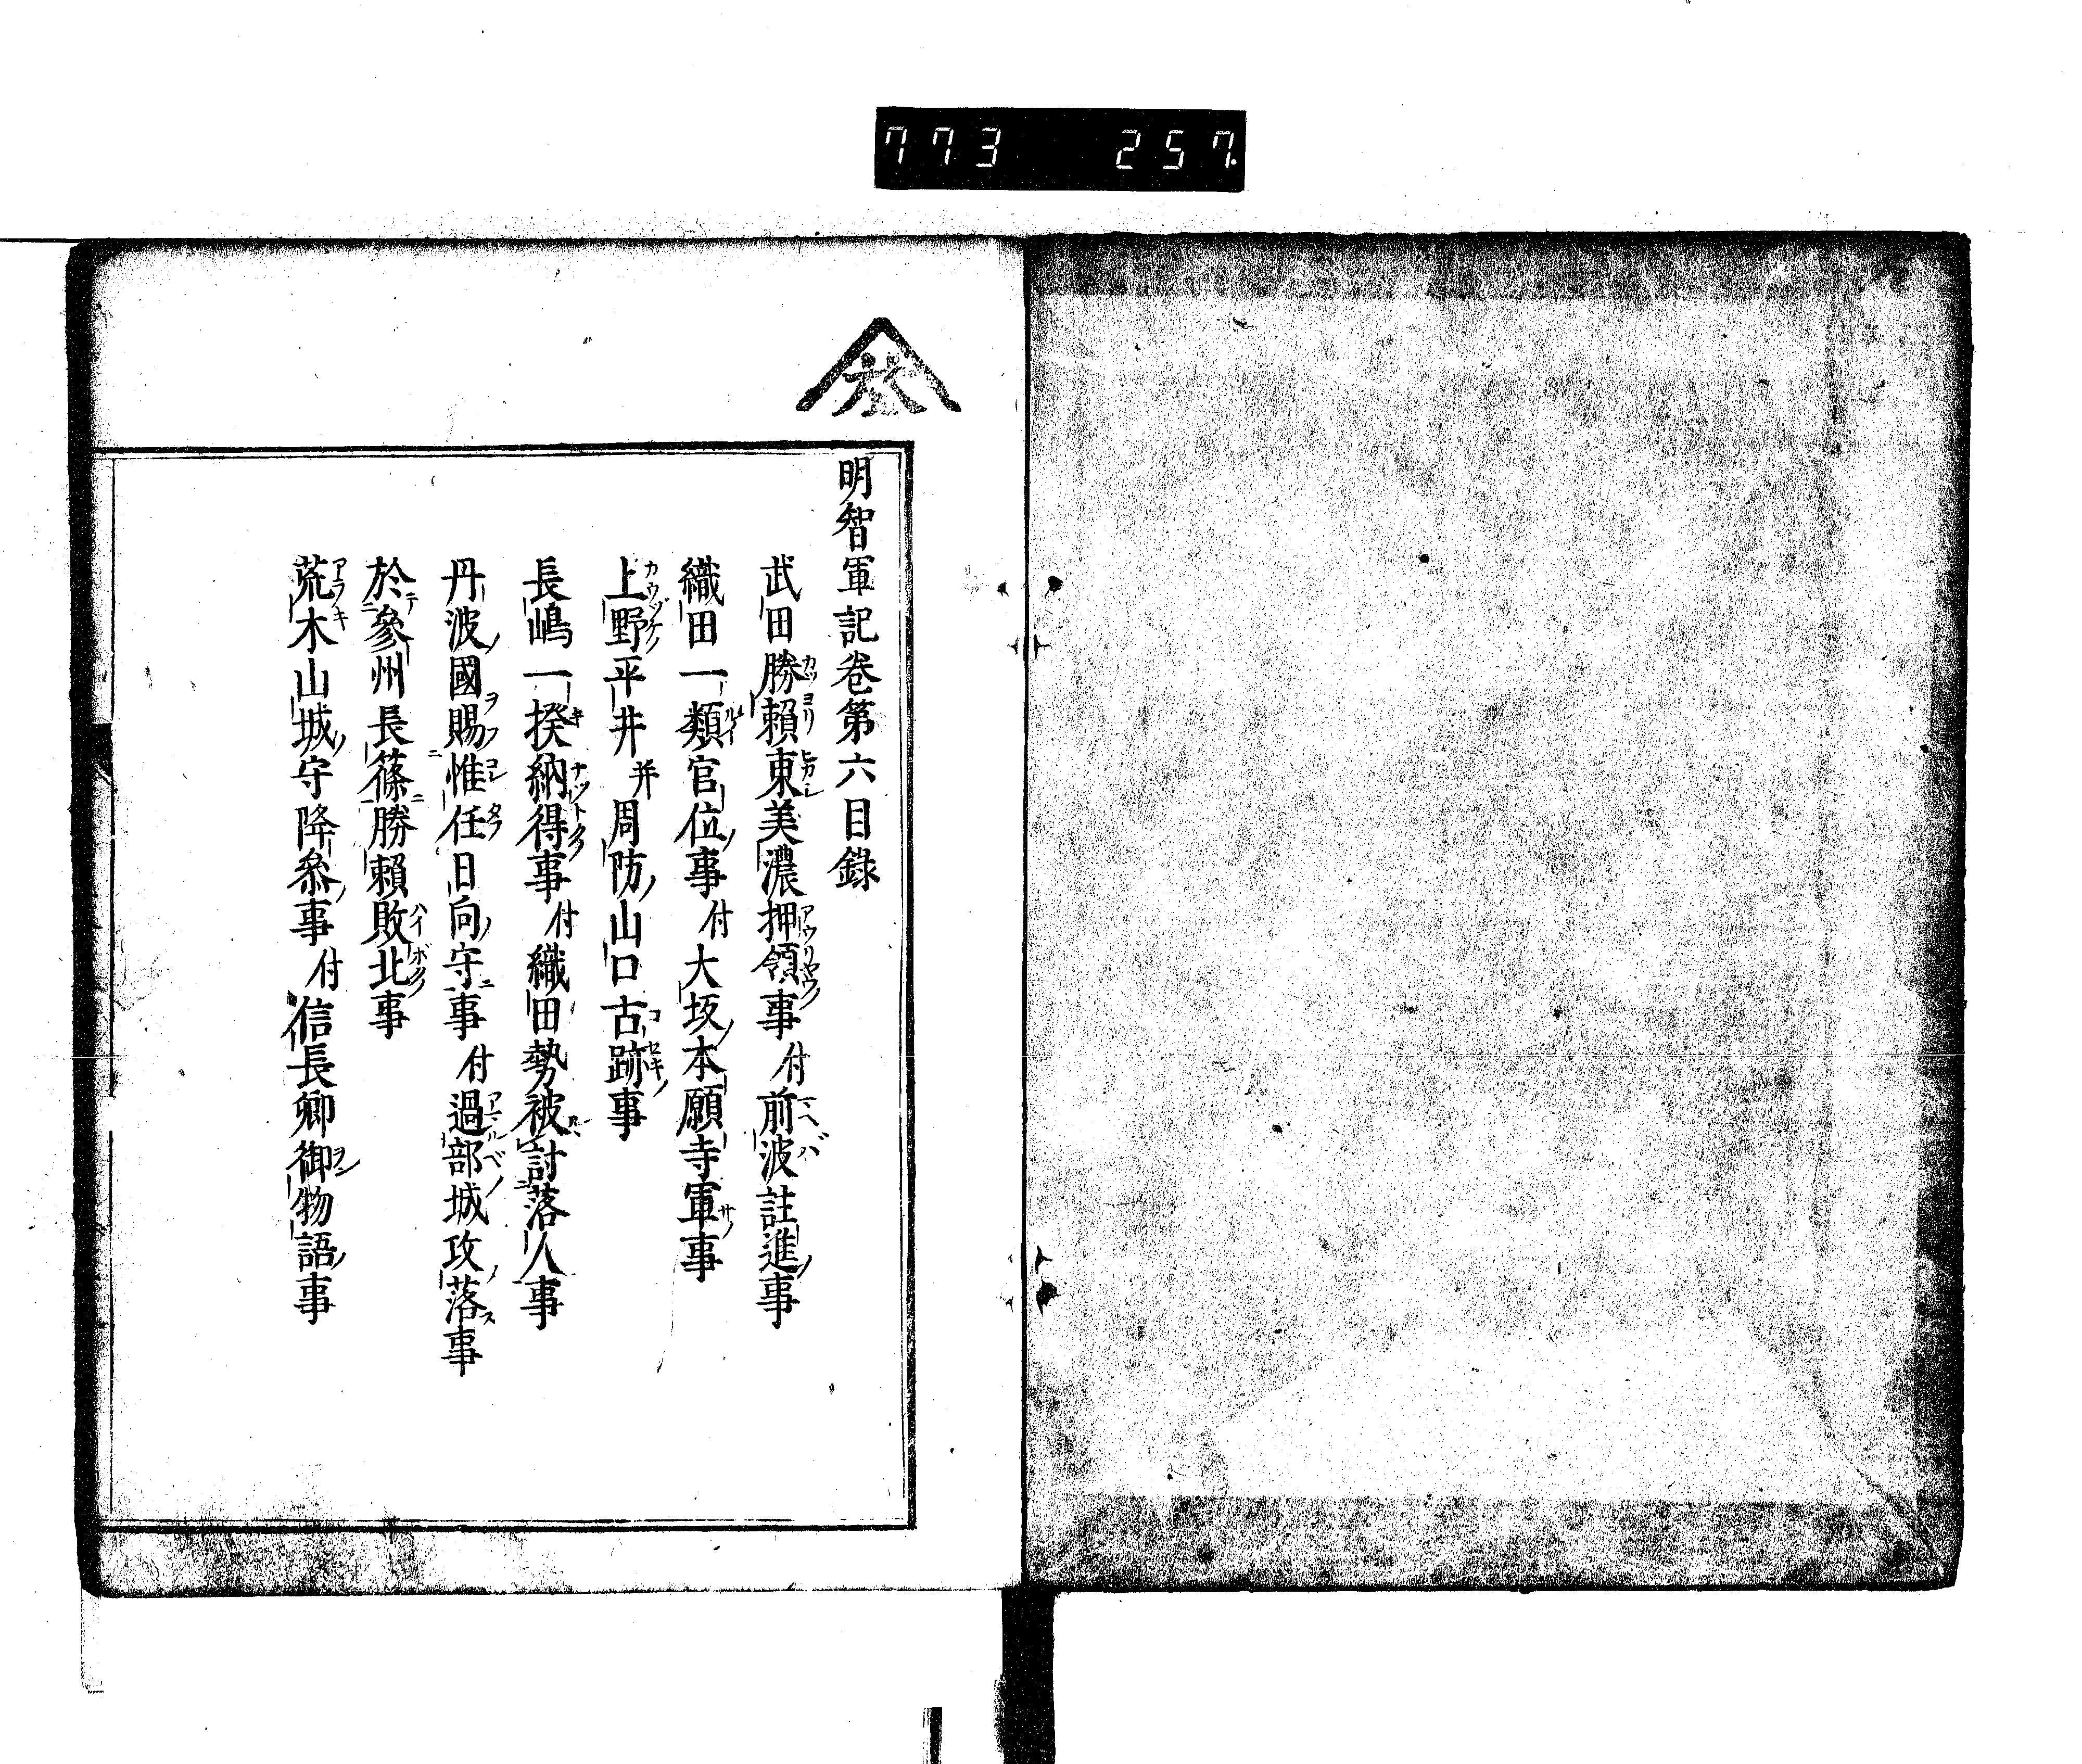 773 257
明智軍記卷第六目錄
武田勝賴東美濃押領事付前波註進事
織田一類官位事付大坂本願寺軍事
上野平井并周防山口古跡事
長嶋一揆納得事付織田勢被討落人事
丹波國賜惟任日向守事付過部城攻落事
於參州長篠勝賴敗北事
荒木山城守降參事付信長卿御物語事